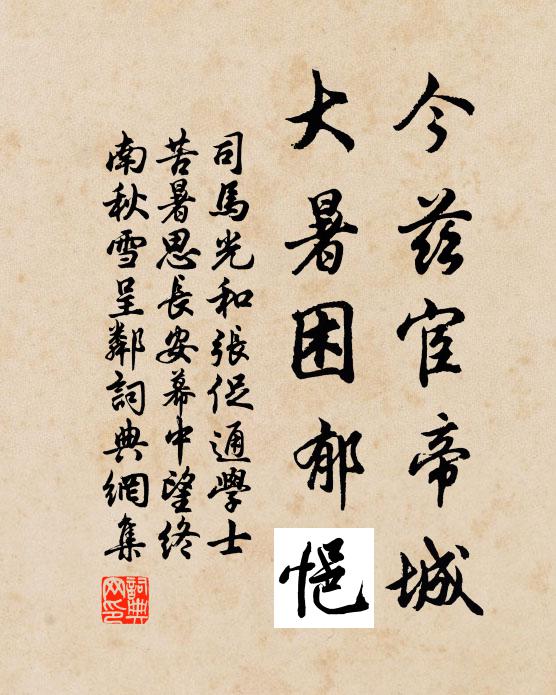 今兹宦帝城
大暑困郁悒
司馬光和張促通學士
苦暑思長安幕中望終
南秋雪呈鄰詞典網集
詞典
网印